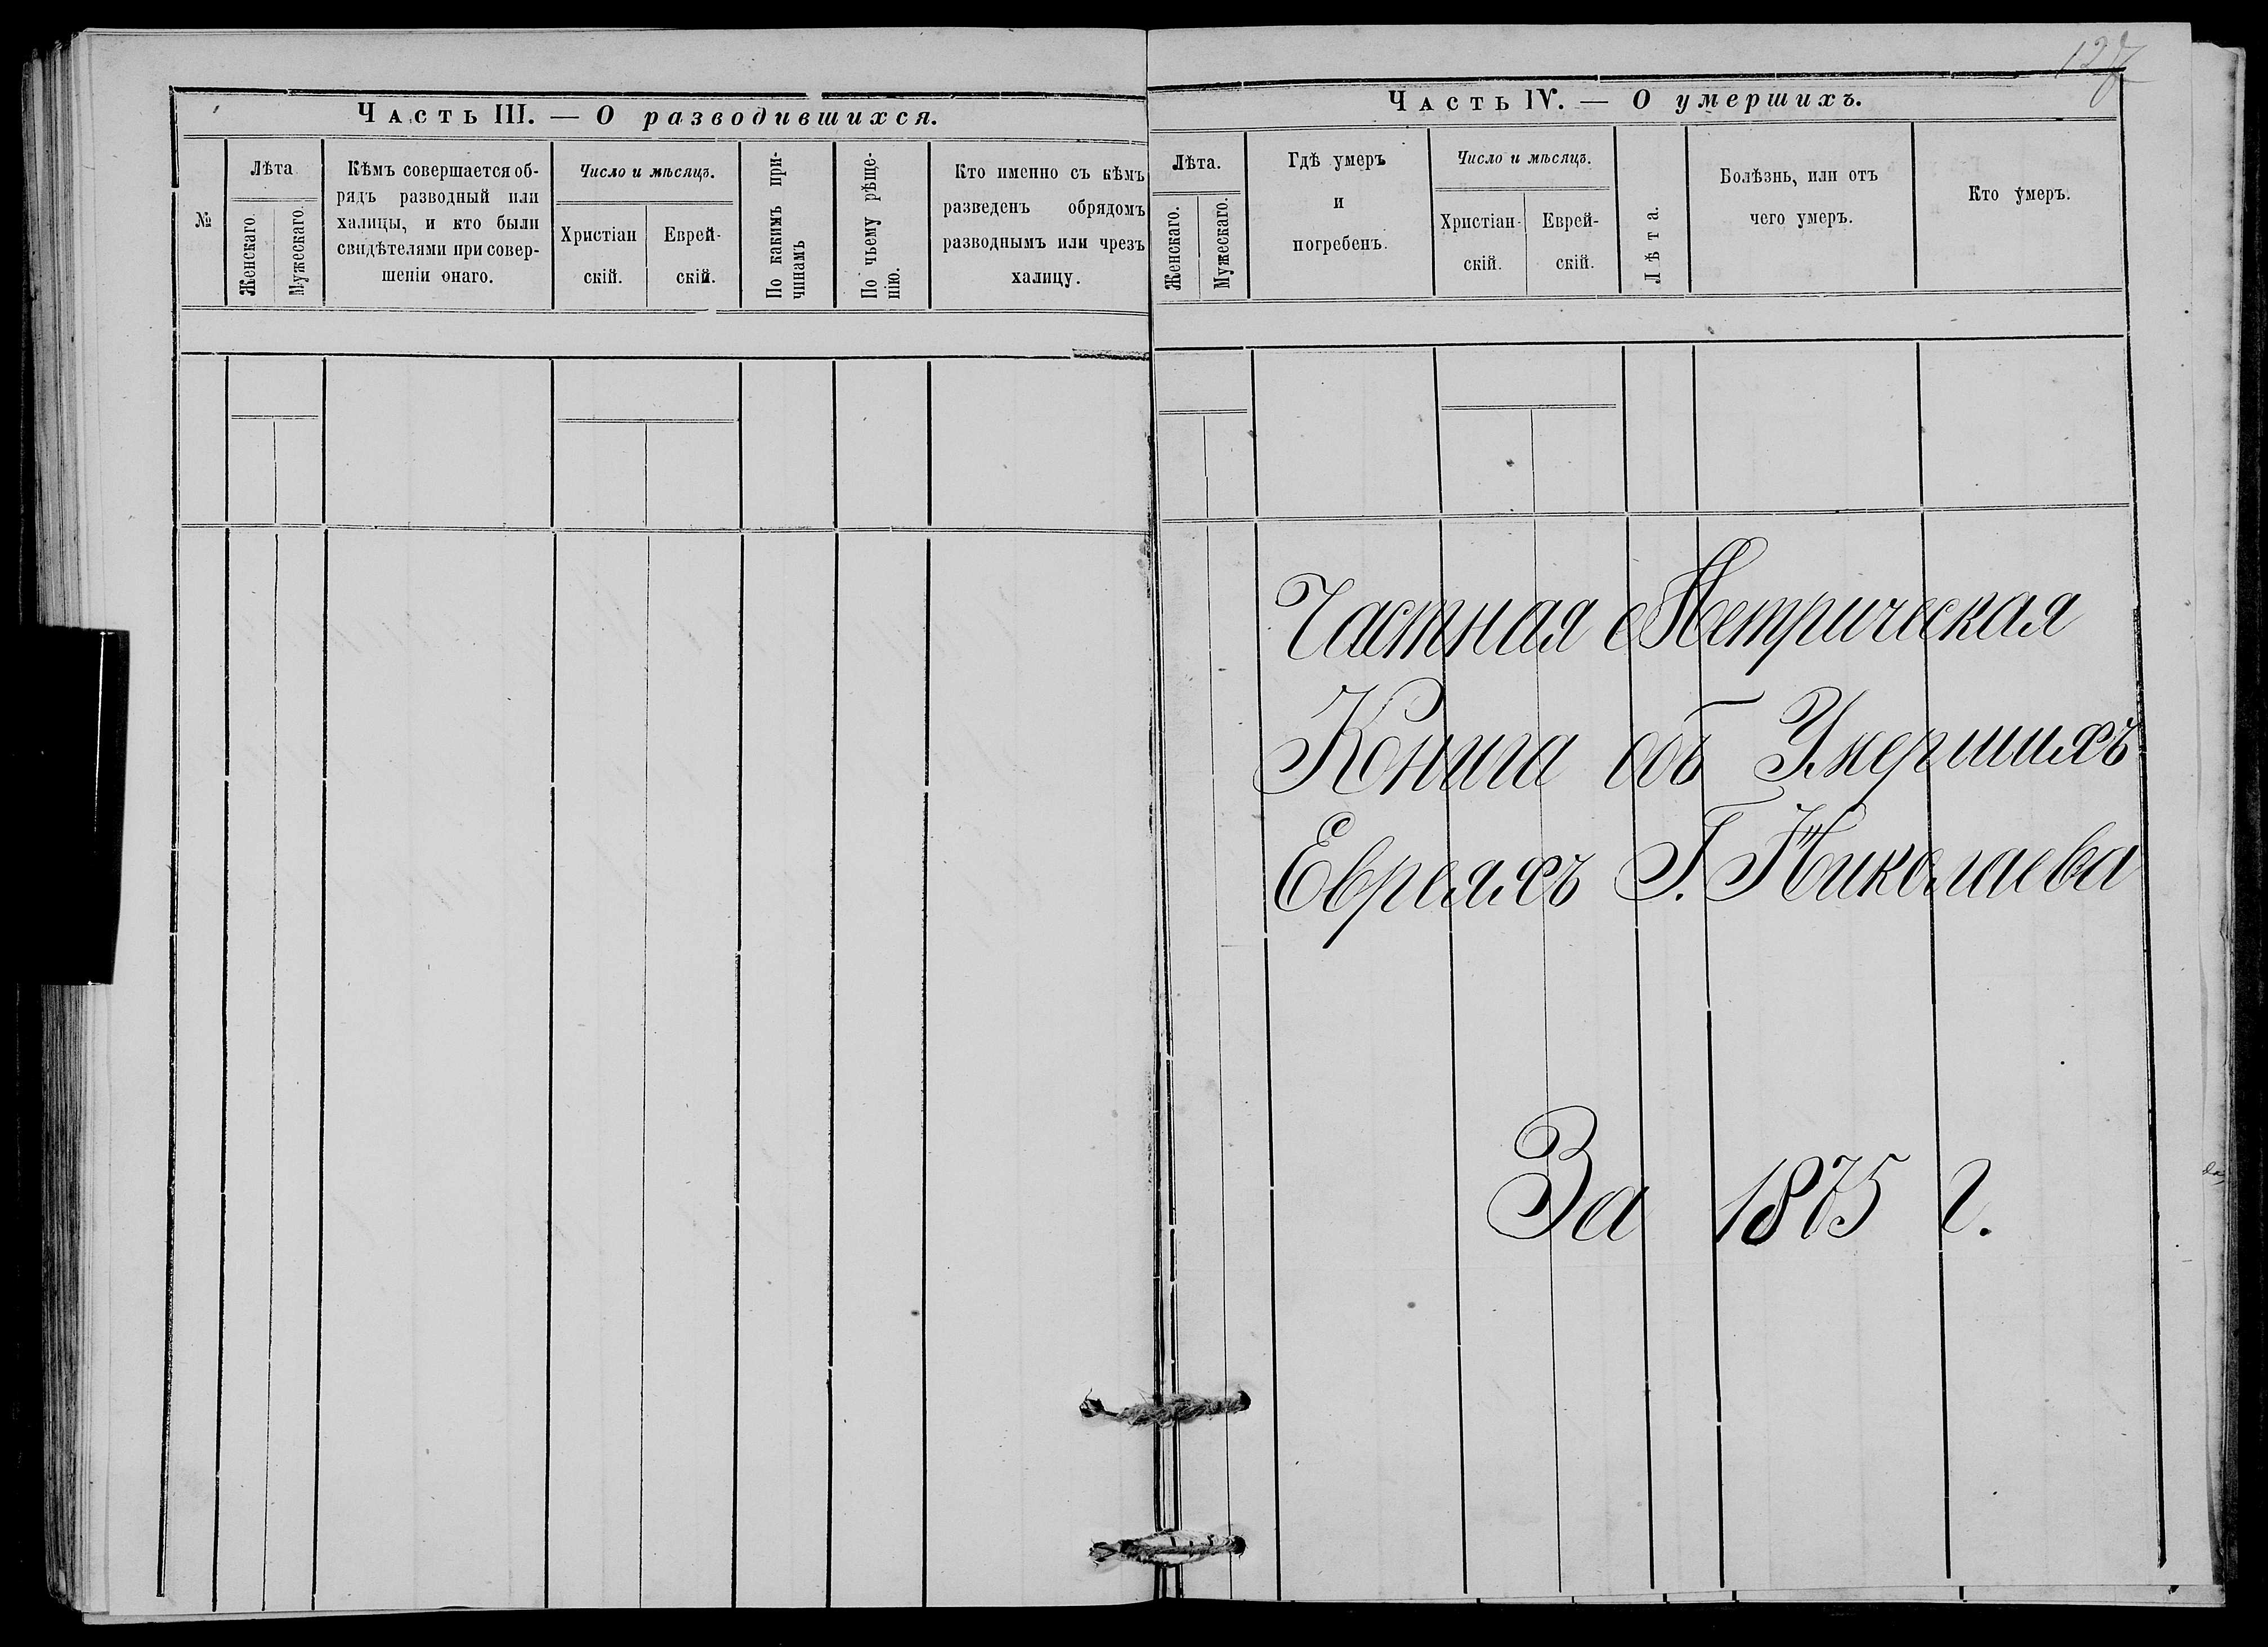 127
Часть III. — О разводившихся.
№
Лѣта
Женскаго.
Мужескаго.
Кѣмъ совершается об-
рядъ разводный или
халицы, и кто были
свидѣтелями при совер-
шеніи онаго.
Число и мѣсяцъ.
Христіан
скій.
Еврей-
скій.
По какимъ при-
чинамъ
По чьему рѣше-
нію.
Кто именно съ кѣмъ
разведенъ обрядомъ
разводнымъ или чрезъ
халицу.
Часть IV. — О умершихъ.
Лѣта.
Женскаго.
Мужескаго.
Гдѣ умеръ
и
погребенъ.
Число и мѣсяцъ.
Христіан-
скій.
Еврей-
скій.
Лѣта.
Болѣзнь, или отъ
чего умеръ.
Кто умеръ.
Частная Метрическая
Книга объ Умершихъ
Евреяхъ Г. Николаева
За 1875 г.